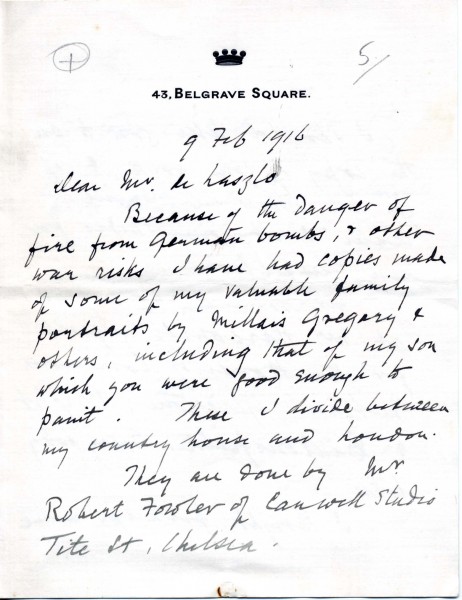 5/
43, BELGRAVE SQUARE.
9 Feb 1916
Dear Mr. de Laszlo
Because of the danger of
fire from German bombs, & other
war risks I have had copies made
of some of my valuable family
portraits by Millais Gregory &
others, including that of my son
which you were good enough to
paint. These I divide between
my country house and London.
They are done by Mr
Robert Fowler of Canwell Studio
Tite St, Chelsea.